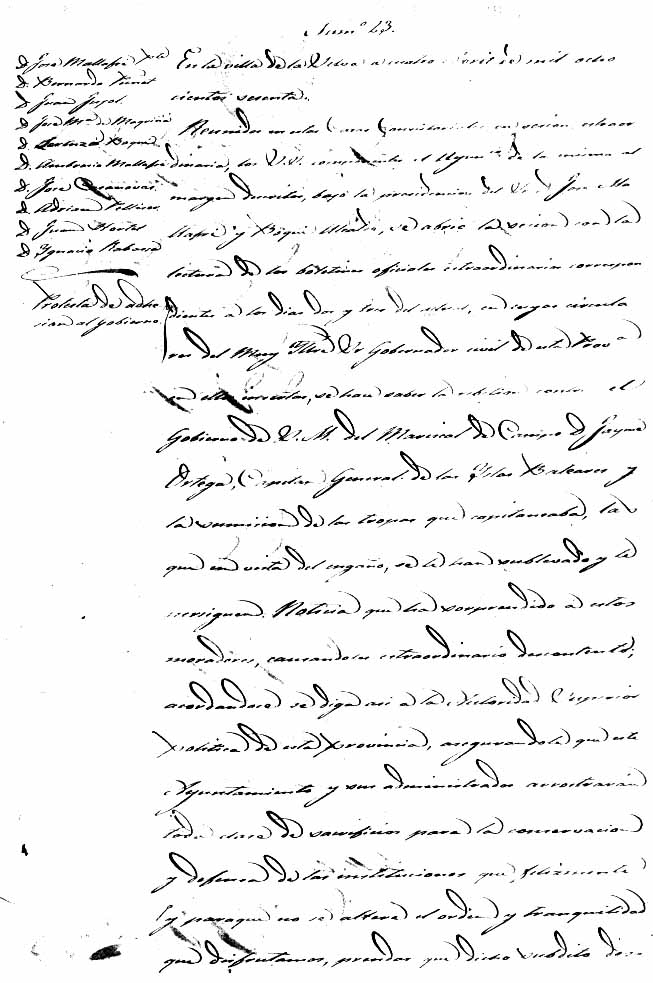 Num.º 23.
D. José Mallafré Pte
D. Bernardo
D. Juan Jujol.
D. José M.ª de Magriñá
D. Boqué
D. Antonio Mallafré
D. José Casanovas
D. Adrian
D. Juan
D. Ygnacio Rabassa
Protesta de adhe
cion al gobierno
En la villa de la Selva a cuatro Abril de mil ocho
cientos sesenta.
Reunidos en estas Casas Consistoriales en sesion estraor
dinaria, los S.S. componentes el Ayun.to de la misma al
margen descritos, bajo la presidencia del Sr. D. José Ma
llafré y Boqué Alcalde, se abrió la sesion con la
lectura de los boletines oficiales estraordinarios correspon
dientes a los dias dos y tres del actual, en cuyas circula
res del Muy Iltre Sr Gobernador civil de esta Prov.ª
en ellos insertas, se hace saber la rebelion contra el
Gobierno de S. M. del Mariscal de Campo D. Jayme
Ortega, Capitan General de las Yslas Baleares y
la sumision de las tropas que capitaneaba, las
que en vista del engaño, se le han sublevado y le
persiguen. Noticia que ha sorprendido a estos
moradores, causandoles estraordinario descontento;
acordandose se diga asi a la Autoridad Superior
politica de esta provincia, asegurandola que este
Ayuntamiento y sus administrados arrostrarán
toda clase de sacrificios para la conservacion
y defensa de las instituciones que felizmente
y paraque no se altere el orden y tranquilidad
que disfrutamos, prendas que dicho subdito